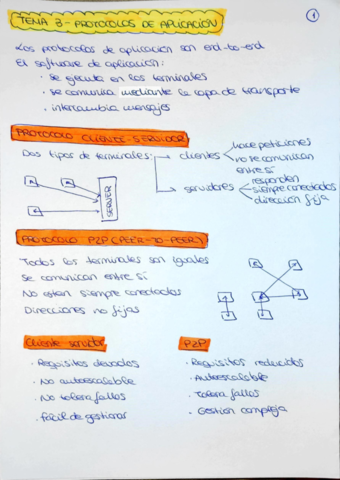 TEMA 3 - PROTOCOLOS DE APLICACIÓN
1
Los protocolos de aplicación son end-to-end
El software de aplicación:
· se ejecuta en los terminales
· se comunica mediante la capa de transporte
· intercambia mensajes
PROTOCOLO CLIENTE-SERVIDOR
Dos tipos de terminales:
clientes
hace peticiones
no se comunican
entre sí
servidores
responden
siempre conectados
dirección fija
SERVER
PROTOCOLO P2P (PEER-TO-PEER)
Todos los terminales son iguales
se comunican entre sí
No están siempre conectados
Direcciones no fijas
Cliente servidor
· Requisitos elevados
· No autoescalable
· No tolera fallos
· fácil de gestionar
P2P
· Requisitos reducidos
· Autoescalable
· Tolera fallos
· Gestión compleja